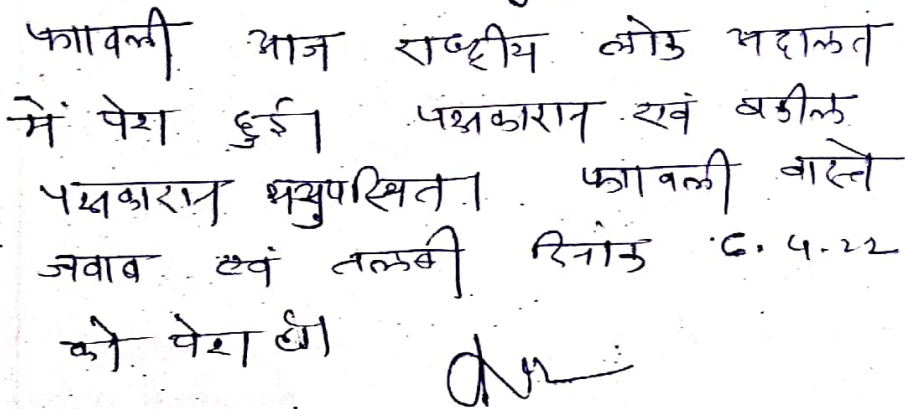 पत्रावली आज राष्ट्रीय लोक अदालत
में पेश हुई। पक्षकारान एवं वकील
पक्षकारान अनुपस्थित। पत्रावली वास्ते
जवाब एवं तलबी दिनांक 6.4.22
को पेश हो।